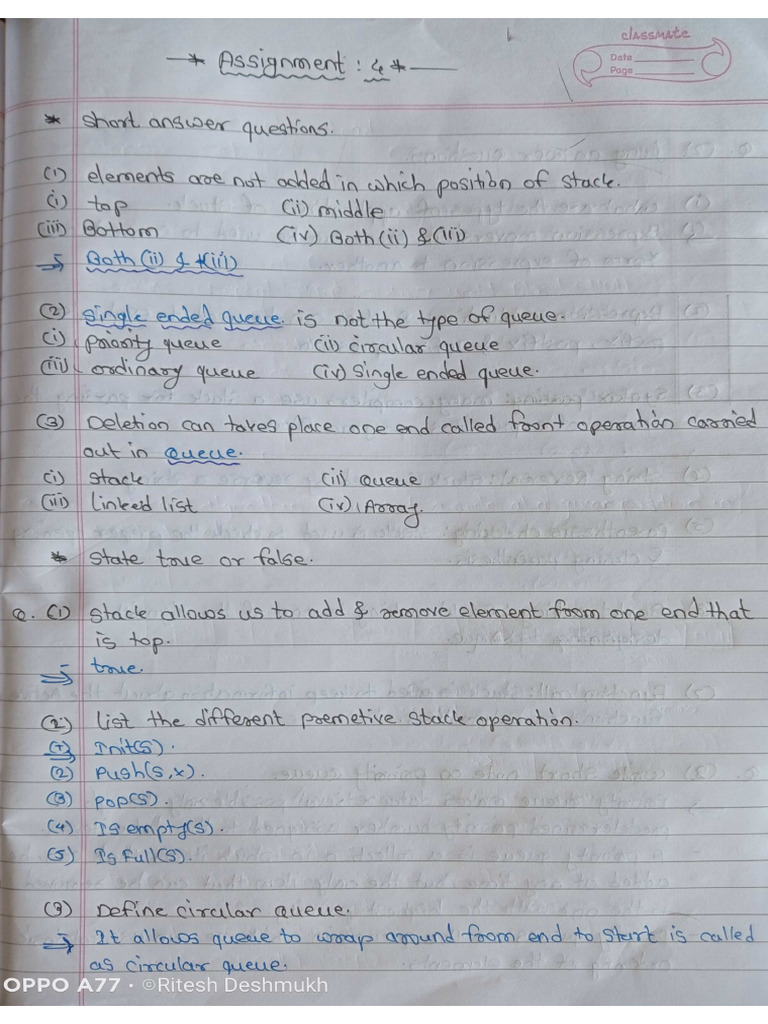 classmate
Date
Page
Assignment : 4
* Short answer questions.
(1) elements are not added in which position of stack.
(i) top (ii) middle
(iii) Bottom (iv) Both (ii) & (iii)
⇒ Both (ii) & (iii)
(2) single ended queue is not the type of queue.
(i) priority queue (ii) circular queue
(iii) ordinary queue (iv) single ended queue.
(3) Deletion can takes place one end called front operation carried
out in queue.
(i) stack (ii) queue
(iii) linked list (iv) Array.
* State true or false.
Q. (1) Stack allows us to add & remove element from one end that
is top.
⇒ true.
(2) List the different premetive stack operation.
(1) Init(s).
(2) Push(s,x).
(3) pop(s).
(4) Is empty(s).
(5) Is full(s).
(3) Define circular queue.
⇒ It allows queue to wrap around from end to start is called
as circular queue.
OPPO A77 · ©Ritesh Deshmukh